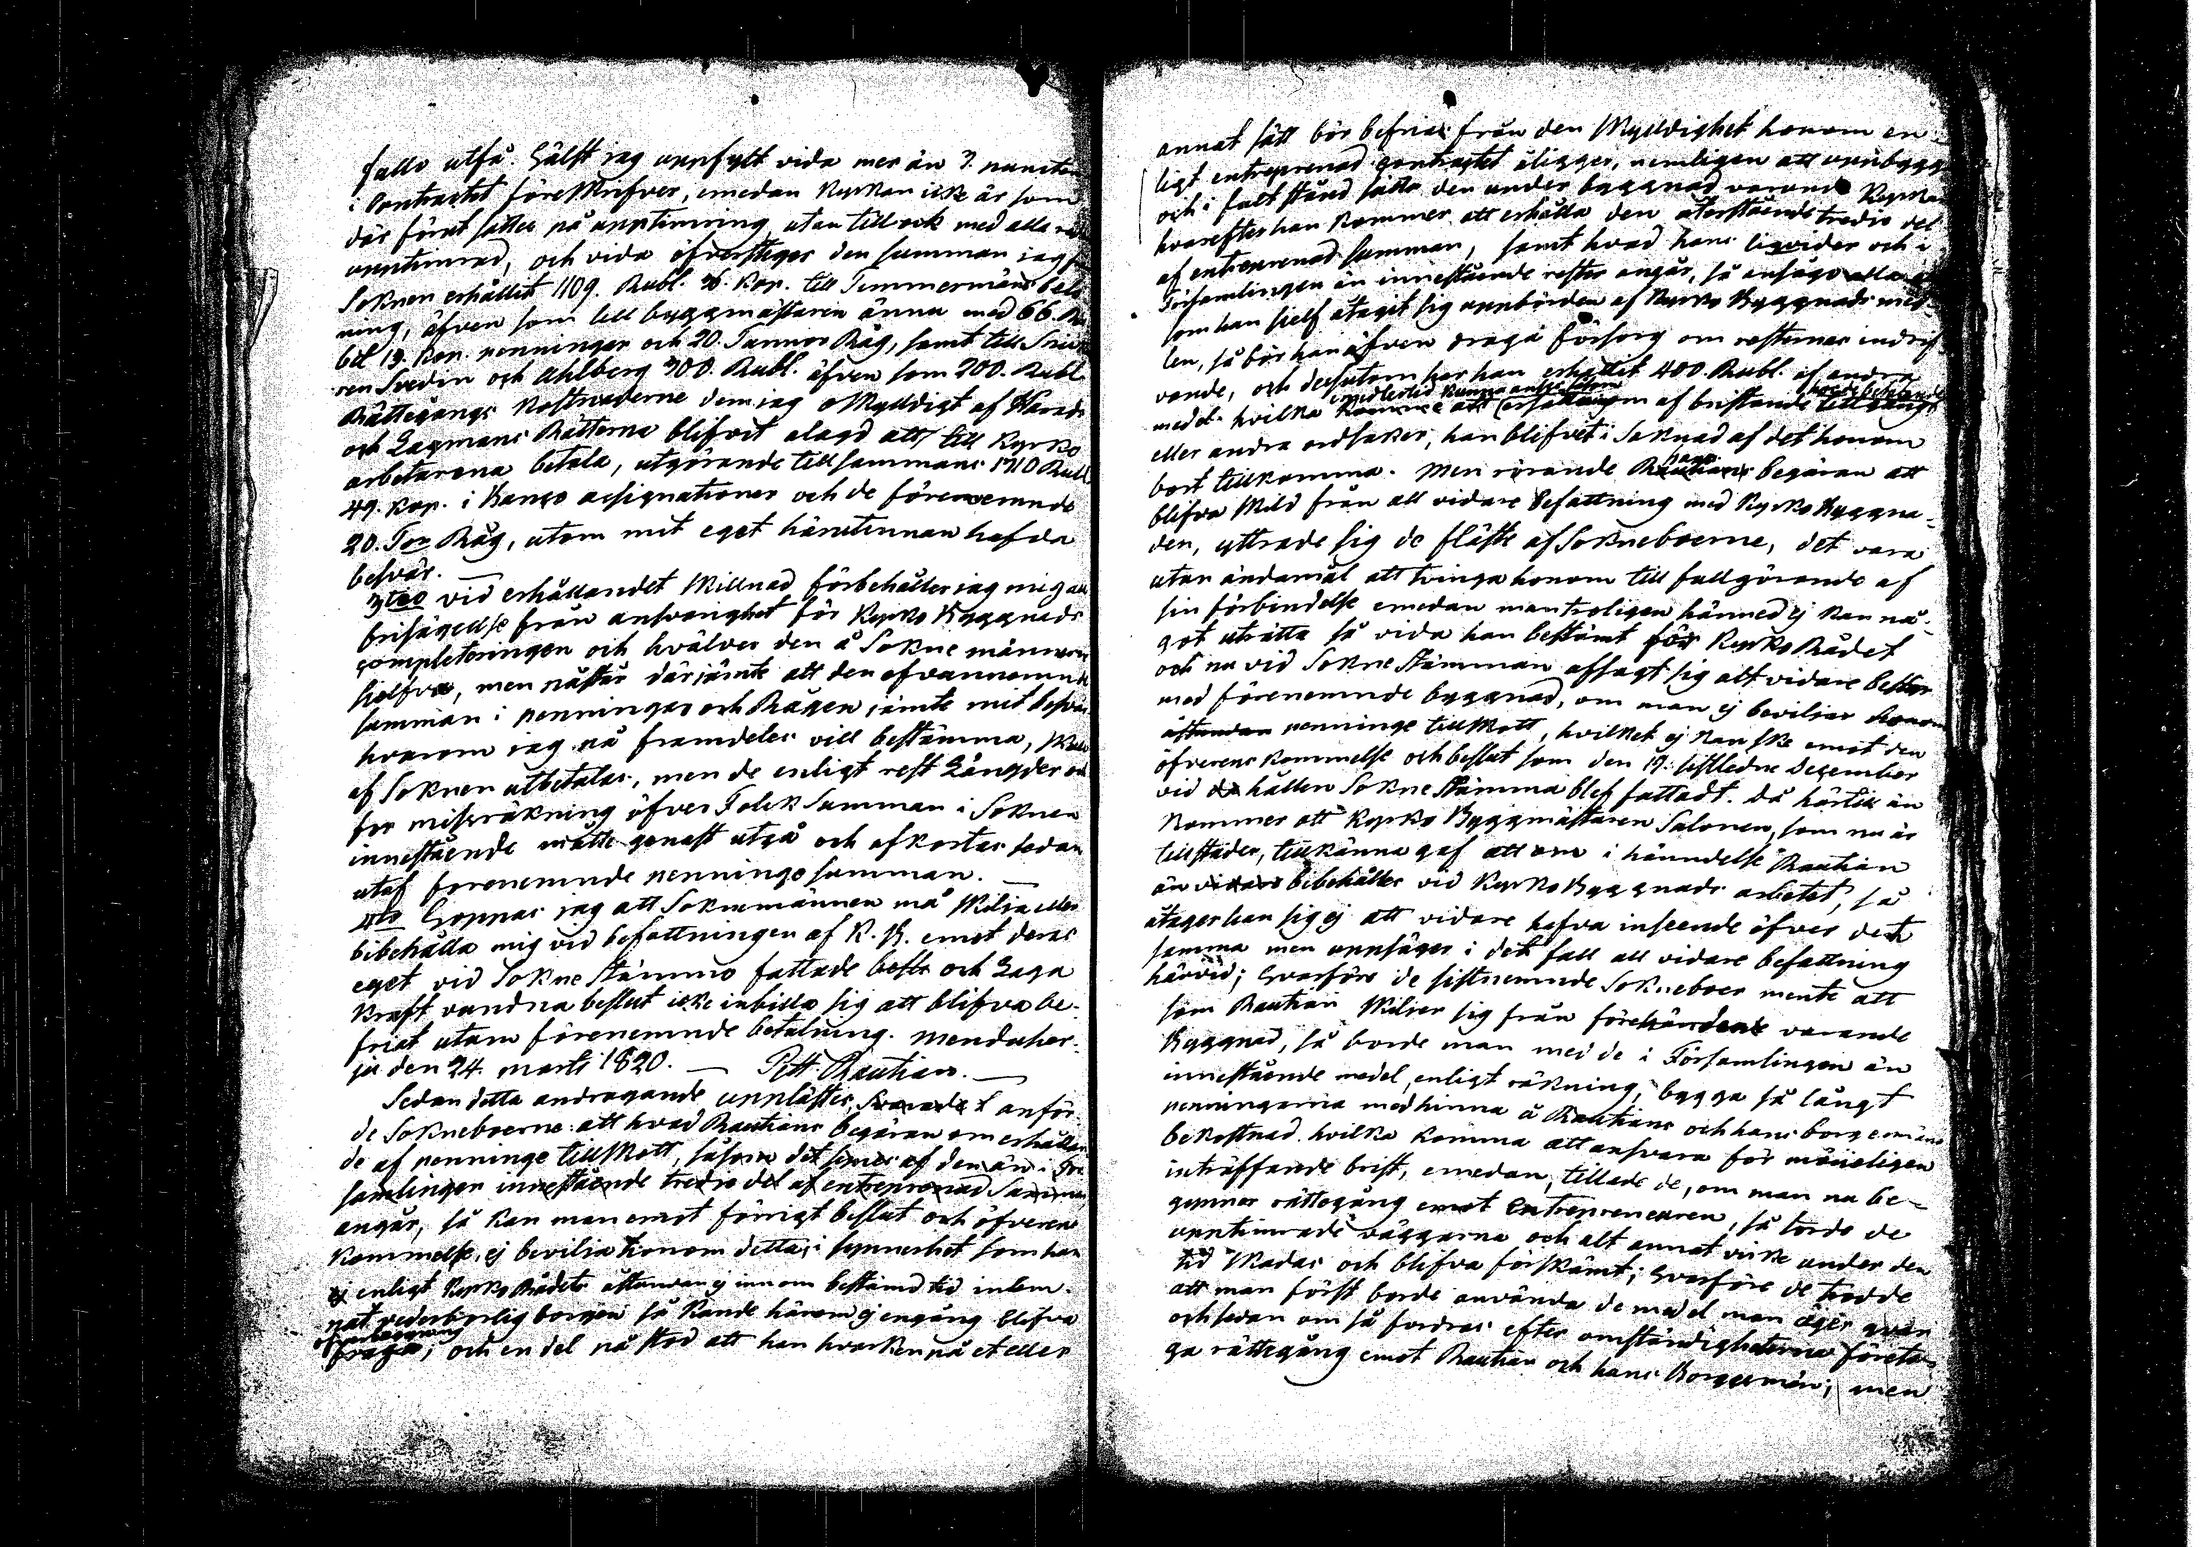 fallo utfå. Hälst jag uppfylt vida mer än 3. puncten
i Contractet föreskrifver, emedan Kyrkan icke är som
där förut sattes på upptimring utan tillock med alla
upptimrad, och vida öfverstiger den summan jag
Soknen erhållit 1109. Rubl. 36. Kop. till Timmermäns belö
ning, äfven som till byggmästaren ännu med 66. Ru
bel 13. Kop. penningar och 20. Tunnor Råg, samt till
ren Svedin och Ahlberg 300. Rubl. äfven som 200. Rubl
Rättegångs Kostnaderne dem jag oskylldigt af Härads
och Lagmans Rätterna blifvit alagd att till Kyrko
arbetarena betala, utgörande tillsammans 1710 Rubl
49. Kop. i Banco assignationer och de förenemnde
20. Tor Råg, utom mit eget härutinnan hafda
besvär. —
3tio vid erhållandet skillnad förbehåller jag mig
frisägelse från ansvarighet för Kyrko Byggnads
completeringen och hvälver den å Sokne männerne
sjelfva, men påstår därjämte att den ofvannemnde
summan i penningar och Rågen jämte mit besvär
hvarom jag på framdeles vill bestämma,
af Soknen utbetalas, men de enligt rest Längder och
for missräkning öfver Folck summan i Soknen
innestående måtte genast utgå och afkortas sedan
utaf forenemnde penninge summan. —
4to Hoppas jag att Soknemännen må skilja eller
bibehålla mig vid befattningen af K. B. emot deras
eget vid Sokne Stämmo fattade och Laga
Kraft vundna beslut icke inbilla sig att blifva be-
friat utom förenemnde betalning. Menduhar-
ju den 24. Marti 1820. — Pett. Rautian. —
Sedan detta andragande uppläster, anför-
de Sokneboerne: att hvad Rautians begäran om erhållan
de af penninge tillskott, såsom det af den än i För
samlingen innestående tredje del af entreprenad Summan
angår, så kan man emot förrigt beslut och öfverens
kommelse, ej bevilja honom detta, i synnerhet som han
ej enligt Kyrko Rådets åstundan ej innom bestämd tid inlem-
nat vederbörlig borgen så kunde härom ej engång blifva
öfverläggning
fråga; och en del påstod att han hvarken på et eller
annat sätt bör befrias från den skylldighet honom en
ligt entreprenad contractet åligger, nemligen att uppbygg
och i fult stånd sätta den under byggnad varande Kyrkan
hvarefter han kommer att erhålla den återstående tredje del
af entreprenad summan, samt hvad hans liqvider och i
Församlingen än innestående rester angår, så ansågo alla
som han sjelf åtagit sig uppbörden af Kyrko Byggnads med
len, så bör han äfven draga försorg om resternas indrif
vande, och dessutom har han erhållit 400. Rubl. af andra
medlertid kunna anses såsom
medel hvilka komma att ersättningen af bristande tillgång
eller andra ordsaker, han blifvet i saknad af det honom
bort tillkomma. Men rörande Rautians begäran att
blifva skild från all vidare befattning med Kyrko Byggna-
den, yttrade sig de fläste af Sokneboerne, det vara
utan ändamål att tvinga honom till fullgörande af
sin förbindelse emedan man troligen härmed ej kan nå-
got uträtta så vida han bestämt för Kyrko Rådet
och nu vid Sokne Stämman afsagt sig all vidare befattn
med förenemnde byggnad, om man ej beviljar honom
åstundan penninge tillskott, hvilket ej kan ske emot den
öfverens kommelse och beslut som den 19. sistledne December
vid hållen Sokne Stämma blef fattadt. Då härtill än
kommer att Kyrko Byggmästaren Salonen, som nu är
tillstädes, tillkänna gaf att om i händelse Rautian
än vidare bibehålles vid Kyrko Byggnads arbetet, så
åtager han sig ej att vidare hafva inseende öfver det
samma men uppsäger i det fall all vidare befattning
härvid; Hvarföre de sistnemnde Sokneboer mente att
som Rautian skiljer sig från förehänder varande
Byggnad, så borde man med de i Församlingen än
innestående medel, enligt räkning, bygga så långt
penningarna medhinna å Rautians och hans borgemäns
bekostnad. hvilka komma att ansvara för möjeligen
inträffande brist, emedan, tillade de, om man nu be-
gynner rättegång emot Entrepreneuren, så torde de
upptimrade väggarna och alt annat virke under den
tid skadas och blifva förskämt; Hvarföre de trodde
att man först borde använda de medel man äger qvar
och sedan om så fordras efter omständigheterna företa-
ga rättegång emot Rautian och hans Borgesmän; men